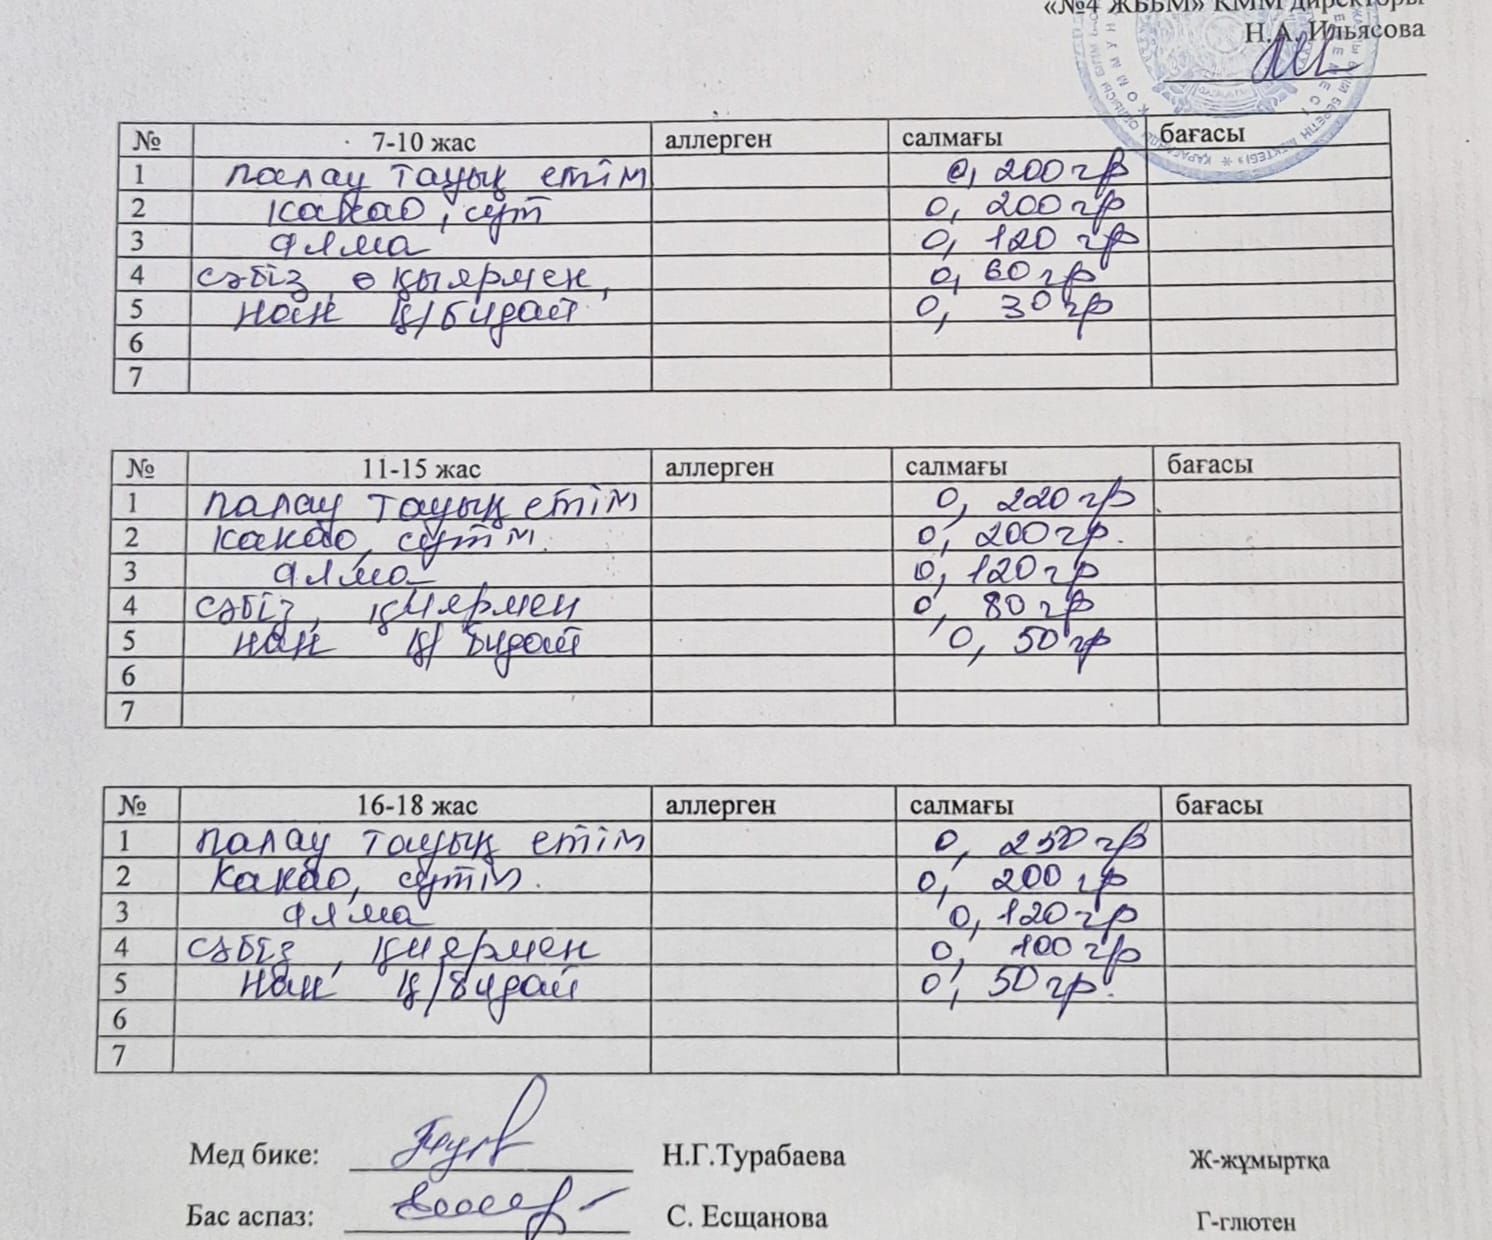 «№4 ЖББМ» КММ директоры
Н.А. Ильясова
№ 7-10 жас аллерген салмағы бағасы
1 палау тауық етім 0, 200 гр
2 какао, сүт 0, 200 гр
3 алма 0, 120 гр
4 сәбіз, қыярмен, 0, 60 гр
5 нан қ/бидай 0, 30 гр
6
7
№ 11-15 жас аллерген салмағы бағасы
1 палау тауық етім 0, 220 гр
2 какао, сүтім. 0, 200 гр.
3 алма 0, 120 гр
4 сәбіз, қиярмен 0, 80 гр
5 нан қ/бидай 0, 50 гр
6
7
№ 16-18 жас аллерген салмағы бағасы
1 палау тауық етім 0, 250 гр
2 какао, сүтім. 0, 200 гр
3 алма 0, 120 гр
4 сәбіз, қиярмен 0, 100 гр
5 нан қ/бидай 0, 50 гр.
6
7
Мед бике: Н.Г.Турабаева Ж-жұмыртқа
Бас аспаз: С. Есщанова Г-глютен